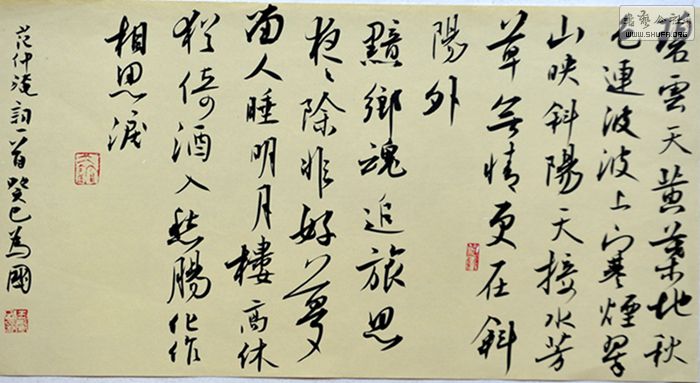 碧雲天黄葉地秋
色連波波上寒煙翠
山映斜陽天接水芳
草無情更在斜
陽外
黯鄉魂追旅思
夜〻除非好夢
留人睡明月樓高休
獨倚酒入愁腸化作
相思淚
范仲淹詞一首癸巳為國
書藝公社
WWW.SHUFA.ORG